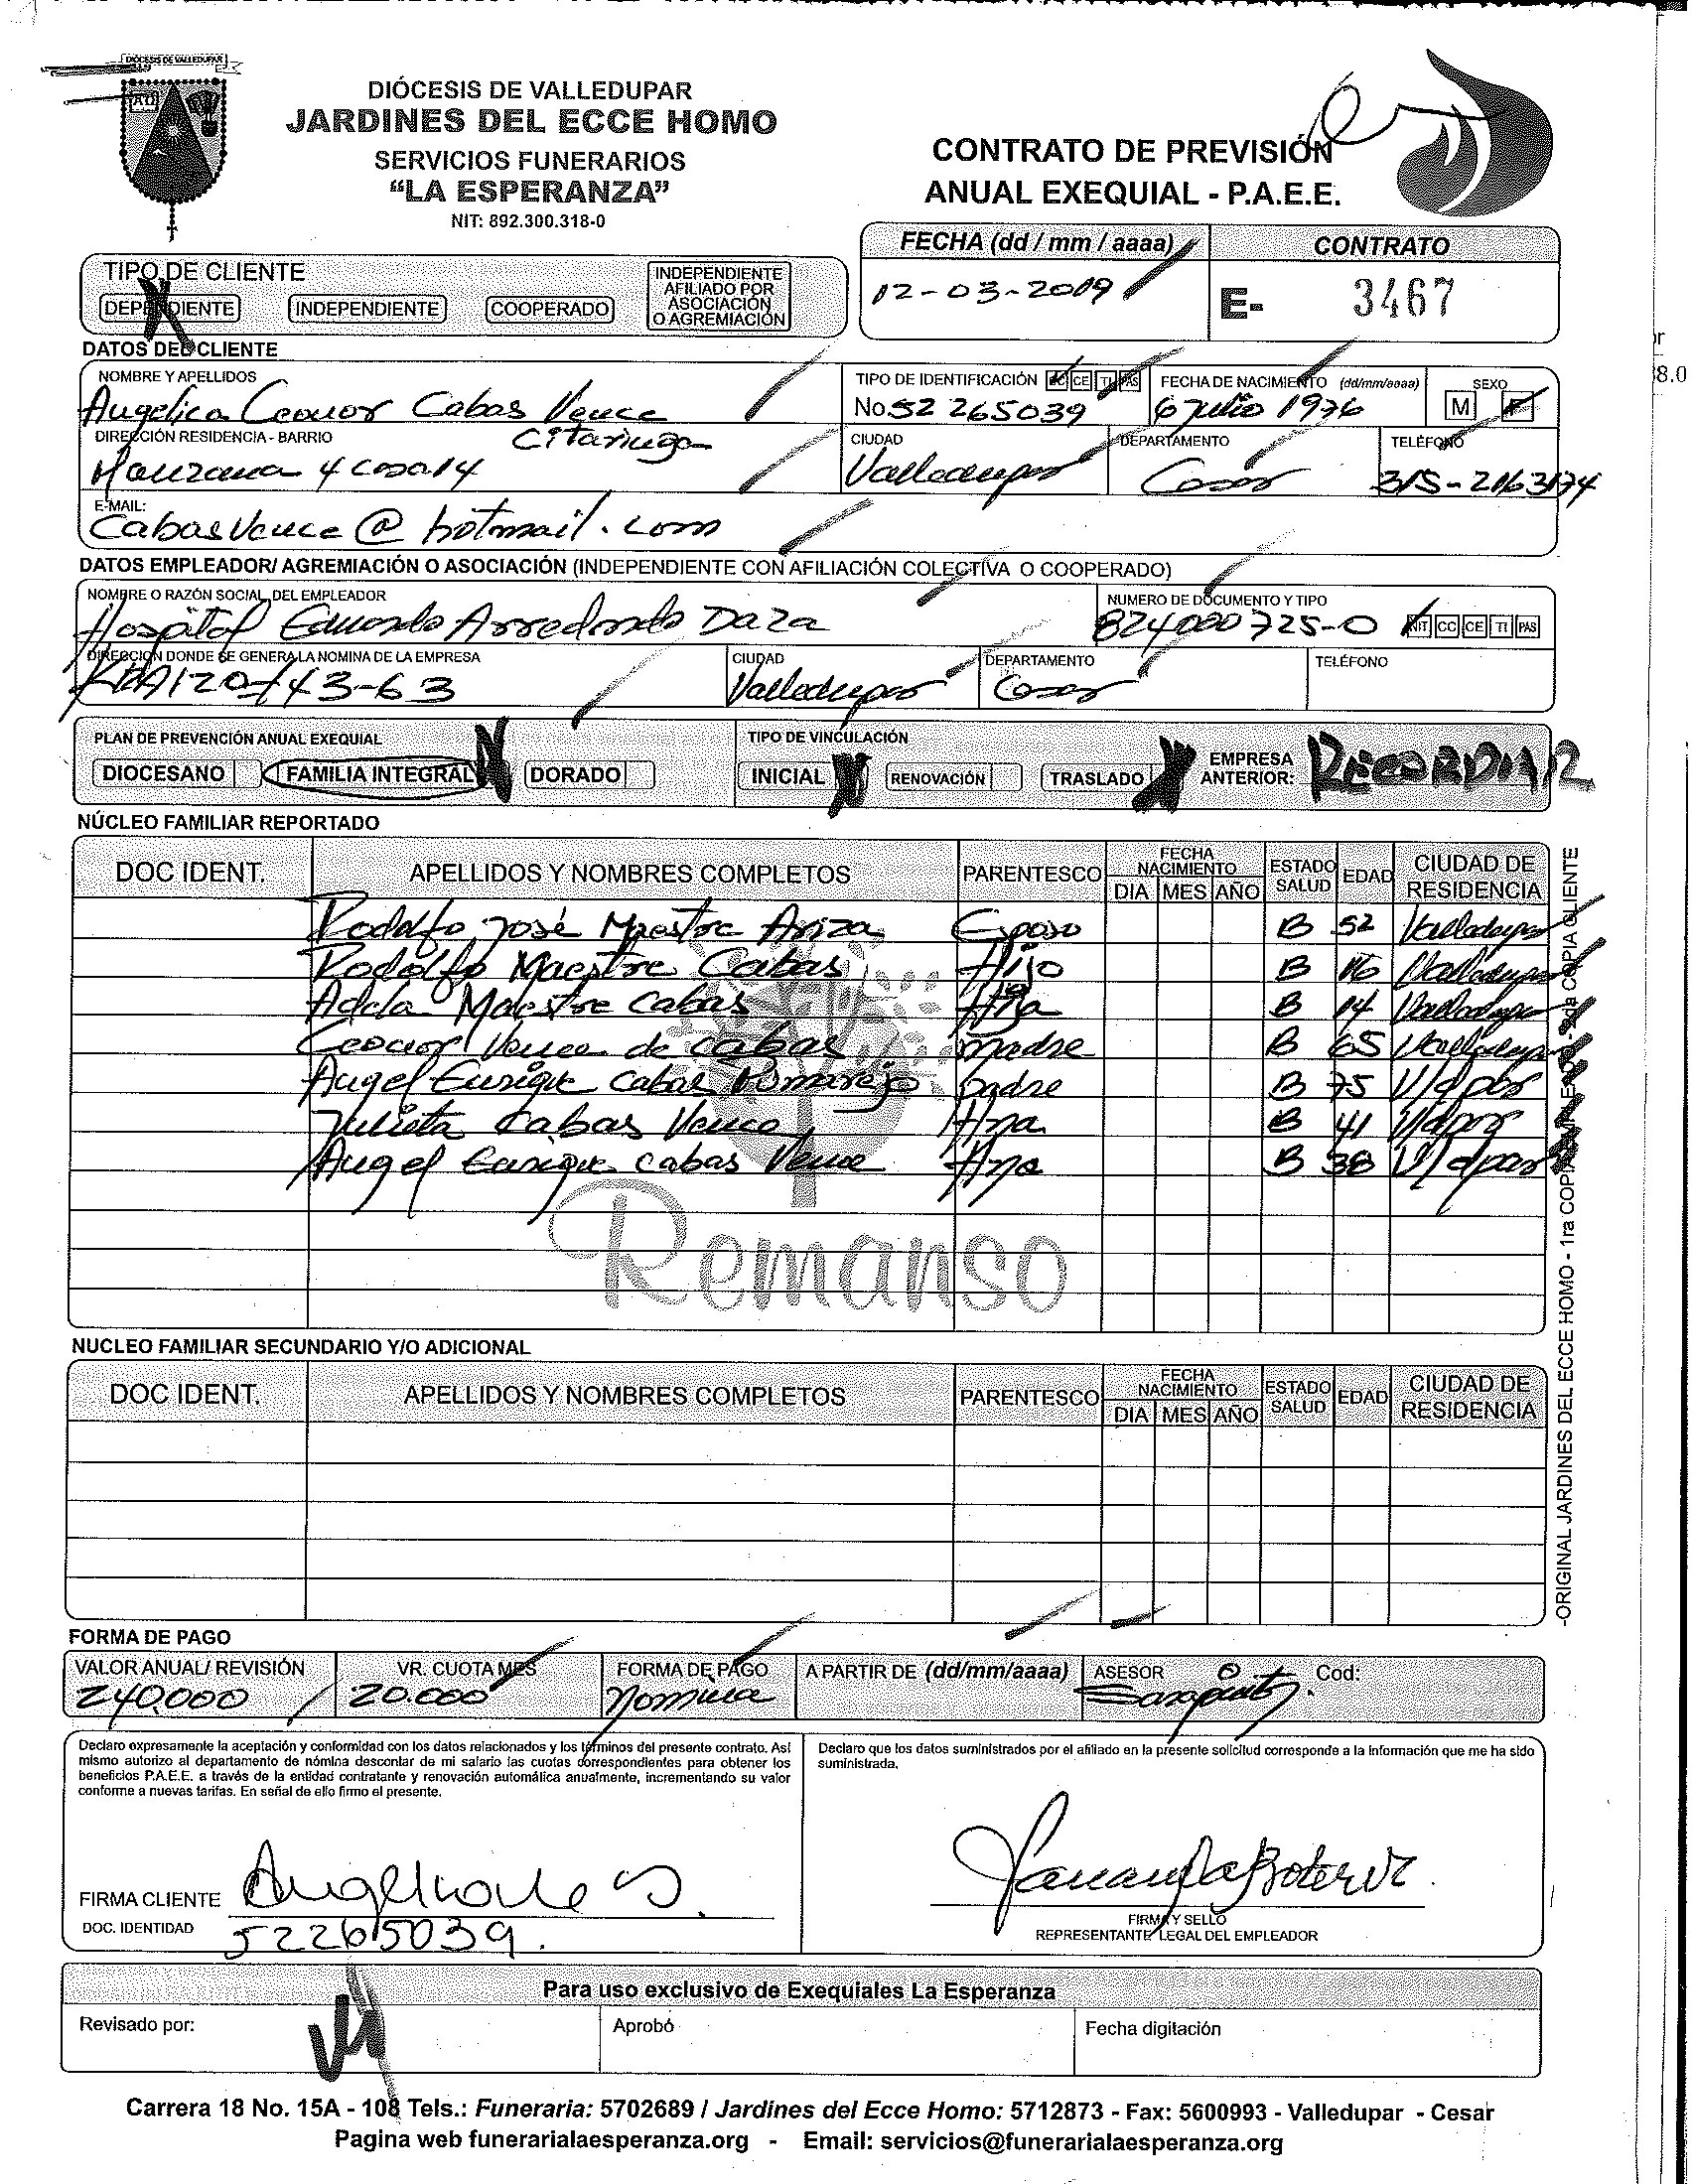 DIOCESIS DE VALLEDUPAR
DIÓCESIS DE VALLEDUPAR
JARDINES DEL ECCE HOMO
SERVICIOS FUNERARIOS
“LA ESPERANZA”
NIT: 892.300.318-0
CONTRATO DE PREVISIÓN
ANUAL EXEQUIAL - P.A.E.E.
FECHA (dd / mm / aaaa) CONTRATO
12-03-2019 E- 3467
TIPO DE CLIENTE
DEPENDIENTE INDEPENDIENTE COOPERADO INDEPENDIENTE AFILIADO POR ASOCIACIÓN O AGREMIACIÓN
DATOS DEL CLIENTE
NOMBRE Y APELLIDOS TIPO DE IDENTIFICACIÓN CC CE TI PAS FECHA DE NACIMIENTO (dd/mm/aaaa) SEXO
Angelica Leonor Cabas Vence No. 52 265039 6 Julio 1976 M F
DIRECCIÓN RESIDENCIA - BARRIO CIUDAD DEPARTAMENTO TELÉFONO
Manzana 4 casa 14 Valledupar Cesar 315-2163174
E-MAIL:
Cabasvence @ hotmail.com
DATOS EMPLEADOR/ AGREMIACIÓN O ASOCIACIÓN (INDEPENDIENTE CON AFILIACIÓN COLECTIVA O COOPERADO)
NOMBRE O RAZÓN SOCIAL DEL EMPLEADOR NUMERO DE DOCUMENTO Y TIPO
Hospital Eduardo Arredondo Daza 824000725-0 NIT CC CE TI PAS
DIRECCIÓN DONDE SE GENERA LA NOMINA DE LA EMPRESA CIUDAD DEPARTAMENTO TELÉFONO
43-63 Valledupar Cesar
PLAN DE PREVENCIÓN ANUAL EXEQUIAL TIPO DE VINCULACIÓN
DIOCESANO FAMILIA INTEGRAL DORADO INICIAL RENOVACIÓN TRASLADO EMPRESA ANTERIOR: RECORDAR
NÚCLEO FAMILIAR REPORTADO
DOC IDENT. APELLIDOS Y NOMBRES COMPLETOS PARENTESCO FECHA NACIMIENTO DIA MES AÑO ESTADO SALUD EDAD CIUDAD DE RESIDENCIA
Rodolfo José Maestre Ariza Esposo B 52 Valledupar
Rodolfo Maestre Cabas Hijo B 16 Valledupar
Adela Maestre Cabas Hija B 14 Valledupar
Leonor Vence de Cabas Madre B 65 Valledupar
Angel Enrique Cabas Pumarejo Padre B 75 V/dpar
Julieta Cabas Vence Hna B 41 V/dpar
Angel Enrique Cabas Vence Hno B 38 V/dpar
Remanso
NUCLEO FAMILIAR SECUNDARIO Y/O ADICIONAL
DOC IDENT. APELLIDOS Y NOMBRES COMPLETOS PARENTESCO FECHA NACIMIENTO DIA MES AÑO ESTADO SALUD EDAD CIUDAD DE RESIDENCIA
-ORIGINAL JARDINES DEL ECCE HOMO - 1ra COPIA 2da COPIA CLIENTE
FORMA DE PAGO
VALOR ANUAL/ REVISIÓN VR. CUOTA MES FORMA DE PAGO A PARTIR DE (dd/mm/aaaa) ASESOR Cod:
240.000 20.000 Nomina
Declaro expresamente la aceptación y conformidad con los datos relacionados y los términos del presente contrato. Asi
mismo autorizo al departamento de nómina descontar de mi salario las cuotas correspondientes para obtener los
beneficios P.A.E.E. a través de la entidad contratante y renovación automática anualmente, incrementando su valor
conforme a nuevas tarifas. En señal de ello firmo el presente.
Declaro que los datos suministrados por el afiliado en la presente solicitud corresponde a la información que me ha sido
suministrada.
FIRMA CLIENTE
DOC. IDENTIDAD 52265039.
FIRMA Y SELLO
REPRESENTANTE LEGAL DEL EMPLEADOR
Para uso exclusivo de Exequiales La Esperanza
Revisado por: Aprobó Fecha digitación
Carrera 18 No. 15A - 108 Tels.: Funeraria: 5702689 / Jardines del Ecce Homo: 5712873 - Fax: 5600993 - Valledupar - Cesar
Pagina web funerarialaesperanza.org - Email: servicios@funerarialaesperanza.org